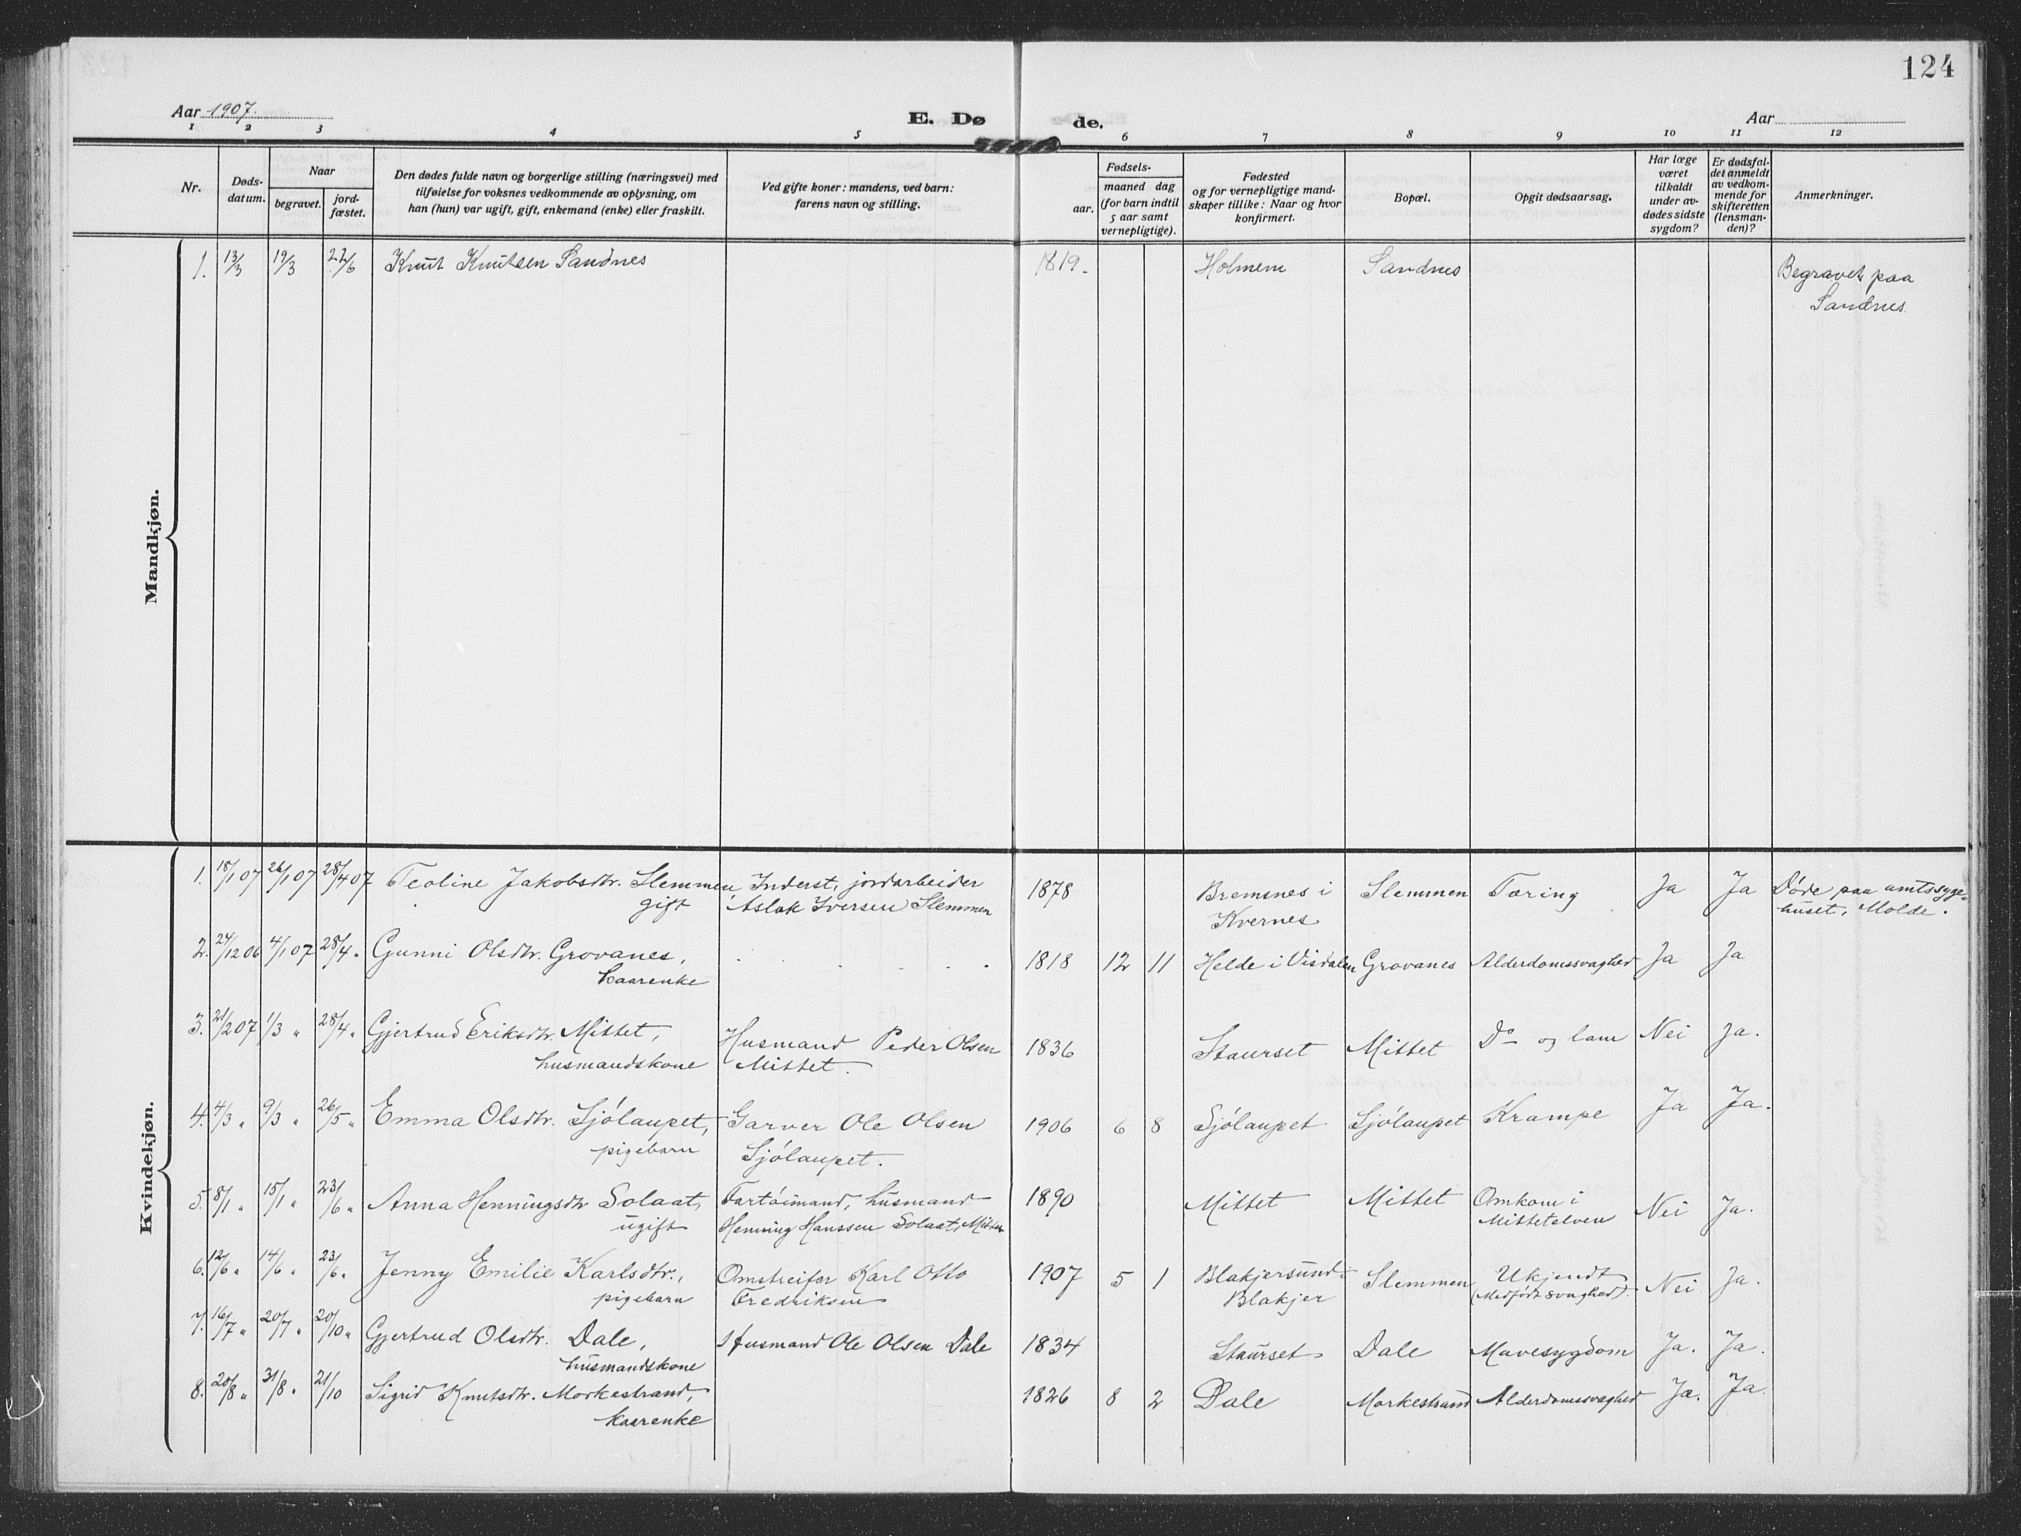 124
Aar 1907.
E. Døde.
Aar
1 2 3 4 5 6 7 8 9 10 11 12
Nr.
Dødsdatum.
Naar
begravet.
jordfæstet.
Den dødes fulde navn og borgerlige stilling (næringsvei) med
tilføielse for voksnes vedkommende av oplysning, om
han (hun) var ugift, gift, enkemand (enke) eller fraskilt.
Ved gifte koner: mandens, ved barn:
farens navn og stilling.
Fødsels-
aar.
maaned dag
(for barn indtil
5 aar samt
vernepligtige).
Fødested
og for vernepligtige mand-
skaper tillike: Naar og hvor
konfirmert.
Bopæl.
Opgit dødsaarsag.
Har læge
været
tilkaldt
under av-
dødes sidste
sygdom?
Er dødsfal-
det anmeldt
av vedkom-
mende for
skifteretten
(lensman-
den)?
Anmerkninger.
Mandkjøn.
1. 13/3 19/3 22/6 Knut Knutsen Sandnes 1819. Holmem Sandnes Begravet paa
Sandnes.
Kvindekjøn.
1. 18/1 07 26/1 07 28/4 07 Teoline Jakobsdtr. Slemmen Inderst, jordarbeider 1878 Bremsnes i Slemmen Tæring Ja Ja Døde paa amtssyge-
gift Aslak Iversen Slemmen Kvernes huset, Molde.
2. 24/12 06 4/1 07 28/4 " Gunni Olsdtr. Grovanes, 1818 12 11 Helde i Visdalen Grovanes Alderdomssvaghed Ja Ja
kaarenke
3. 21/2 07 1/3 " 28/4 " Gjertrud Eriksdtr. Mittet, Husmand Peder Olsen 1836 Staurset Mittet Do og lam Nei Ja.
husmandskone Mittet.
4. 4/3 " 9/3 " 26/5 " Emma Olsdtr. Sjølaupet, Garver Ole Olsen 1906 6 8 Sjølaupet Sjølaupet Krampe Ja Ja.
pigebarn Sjølaupet.
5. 8/1 " 15/1 " 23/6 " Anna Henningsdtr Solaat, Fartøimand, husmand 1890 Mittet Mittet Omkom i Nei Ja.
ugift Henning Hanssen Solaat, Mittet Mittetelven
6. 12/6 " 14/6 " 23/6 " Jenny Emilie Karlsdtr., Omstreifer Karl Otto 1907 5 1 Blakjersund- Slemmen Ukjendt Nei Ja.
pigebarn Fredriksen Blakjer (Medfødt svaghed).
7. 16/7 " 20/7 " 20/10 " Gjertrud Olsdtr. Dale, Husmand Ole Olsen Dale 1834 Staurset Dale Mavesygdom Ja. Ja.
husmandskone
8. 20/8 " 31/8 " 21/10 Sigrid Knutsdtr. Morkestrand, 1826 8 2 Dale Morkestrand Alderdomssvaghed Ja. Ja.
kaarenke